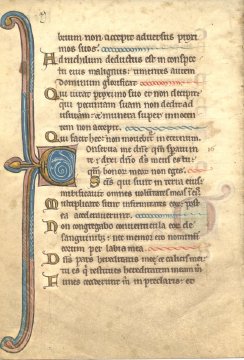 brium non accepit adversus proxi
mos suos.
Ad nichilum deductus est in conspec
tu eius malignus: timentes autem
dominum glorificat.
Qui iurat proximo suo et non decipit:
qui pecuniam suam non dedit ad
usuram: et munera super innocen
tem non accepit.
Qui facit hec: non movebitur in eternum.
Conserva me dñe qm̃ speravi in
te: dixi dño ds̃ meus es tu:
qm̃ bonor̃ meor̃ non eges.
Scis qui sunt in terra eius:
mirificavit omnes voluntates meas
Multiplicate sunt infirmitates eor̃: post
ea acceleraverunt.
Non congregabo conventicula eor̃ de
sanguinib;: nec memor ero nominũ
eorum per labia mea.
Dñs pars hereditatis mee et calicis mei:
tu es q̃ restitues hereditatem meam m̃
Funes ceciderunt m̃ in preclaris: et